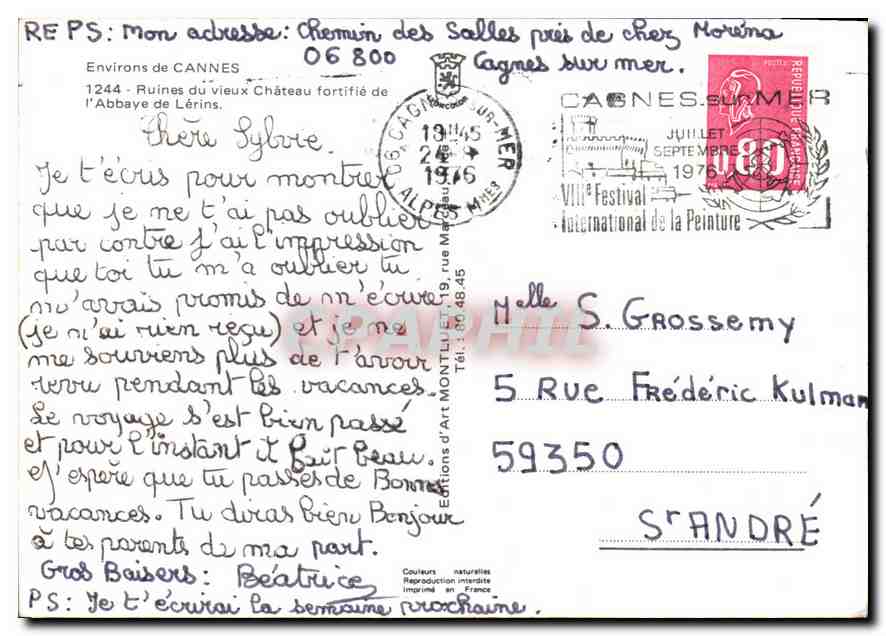 RE PS: Mon adresse: Chemin des Salles près de chez Moréna
06 800 Cagnes sur mer.
Environs de CANNES
1244 - Ruines du vieux Château fortifié de
l'Abbaye de Lérins.
Chère Sylvie.
Je t'écris pour montrer
que je ne t'ai pas oublier
par contre j'ai l'impression
que toi tu m'a oublier tu
m'avais promis de m'écrire
(je n'ai rien reçu) et je ne
me souviens plus de t'avoir
revu pendant les vacances.
Le voyage s'est bien passé
et pour l'instant il fait beau.
J'espère que tu passes de Bonnes
vacances. Tu diras bien Bonjour
à tes parents de ma part.
Gros Baisers: Béatrice
PS: Je t'écrirai la semaine prochaine.
Editions d'Art MONTLUET, 19, rue Marceau
Tél.: 80.48.45
Couleurs naturelles
Reproduction interdite
Imprimé en France
06 CAGNES-SUR-MER
13H45
1976
ALPES Mmes
CAGNES.sur.MER
JUILLET
SEPTEMBRE
1976
VIIIe Festival
International de la Peinture
POSTES
REPUBLIQUE FRANÇAISE
0,80
Melle S. GROSSEMY
5 RUE FRÉDÉRIC KULMAN
59350
ST ANDRÉ
CPAPHIL